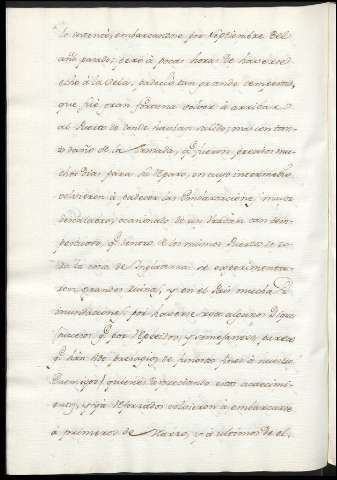 lo intentó, embarcandose por Septiembre del
año pasado; pero à pocas horas de haverse
echo à la Vela, padeció tan grande tempestad,
que fué gran fortuna volver à arribar
al Puerto de donde havian salido, mas con tan-
to daño de la Armada, q.e fueron precisos mu-
chos dias para su reparo, en cuyo intermedio
volvieron à padecer las Embarcaciones mucho
descalabro, ocasionado de un Uracan tan tem-
pestuoso, q.e dentro de los mismos Puertos de to-
da la costa de Inglaterra se experimenta-
ron grandes ruinas, y en el Pais mucha
inundaciones, por haverse roto algunos Diques
sucesos q.e por repetidos y semejantes, parece
q.e han sido presagios de funestos fines à nuestros
Enemigos, quienes despreciando estos acaecimi-
entos, y ya reforzados volvieron à embarcarse
à primeros de Marzo, y à ultimos de el,